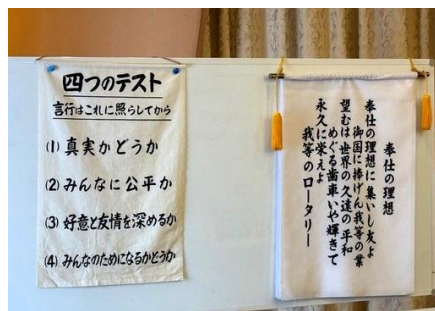 四つのテスト
言行はこれに照らしてから
(1) 真実かどうか
(2) みんなに公平か
(3) 好意と友情を深めるか
(4) みんなのためになるかどうか
奉仕の理想
奉仕の理想に集いし友よ
御国に捧げん我等の業
望むは世界の久遠の平和
めぐる歯車いや輝きて
永久に栄えよ
我等のロータリー